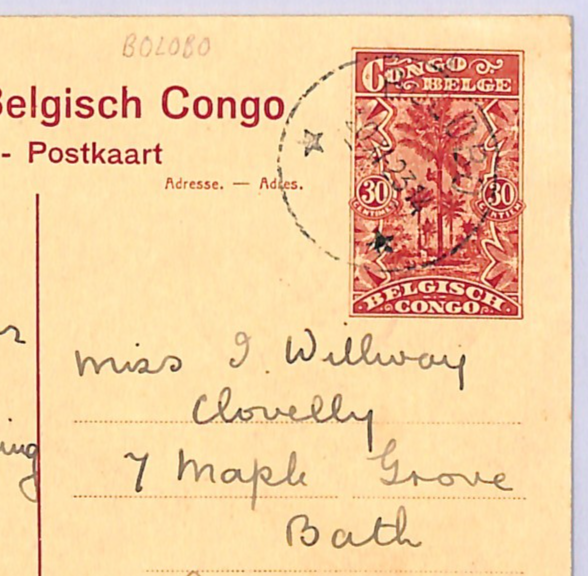 BOLOBO
Belgisch Congo
- Postkaart
Adresse. — Adres.
CONGO
BELGE
30
30
BELGISCH
CONGO
Miss I. Willway
Clovelly
7 Maple Grove
Bath